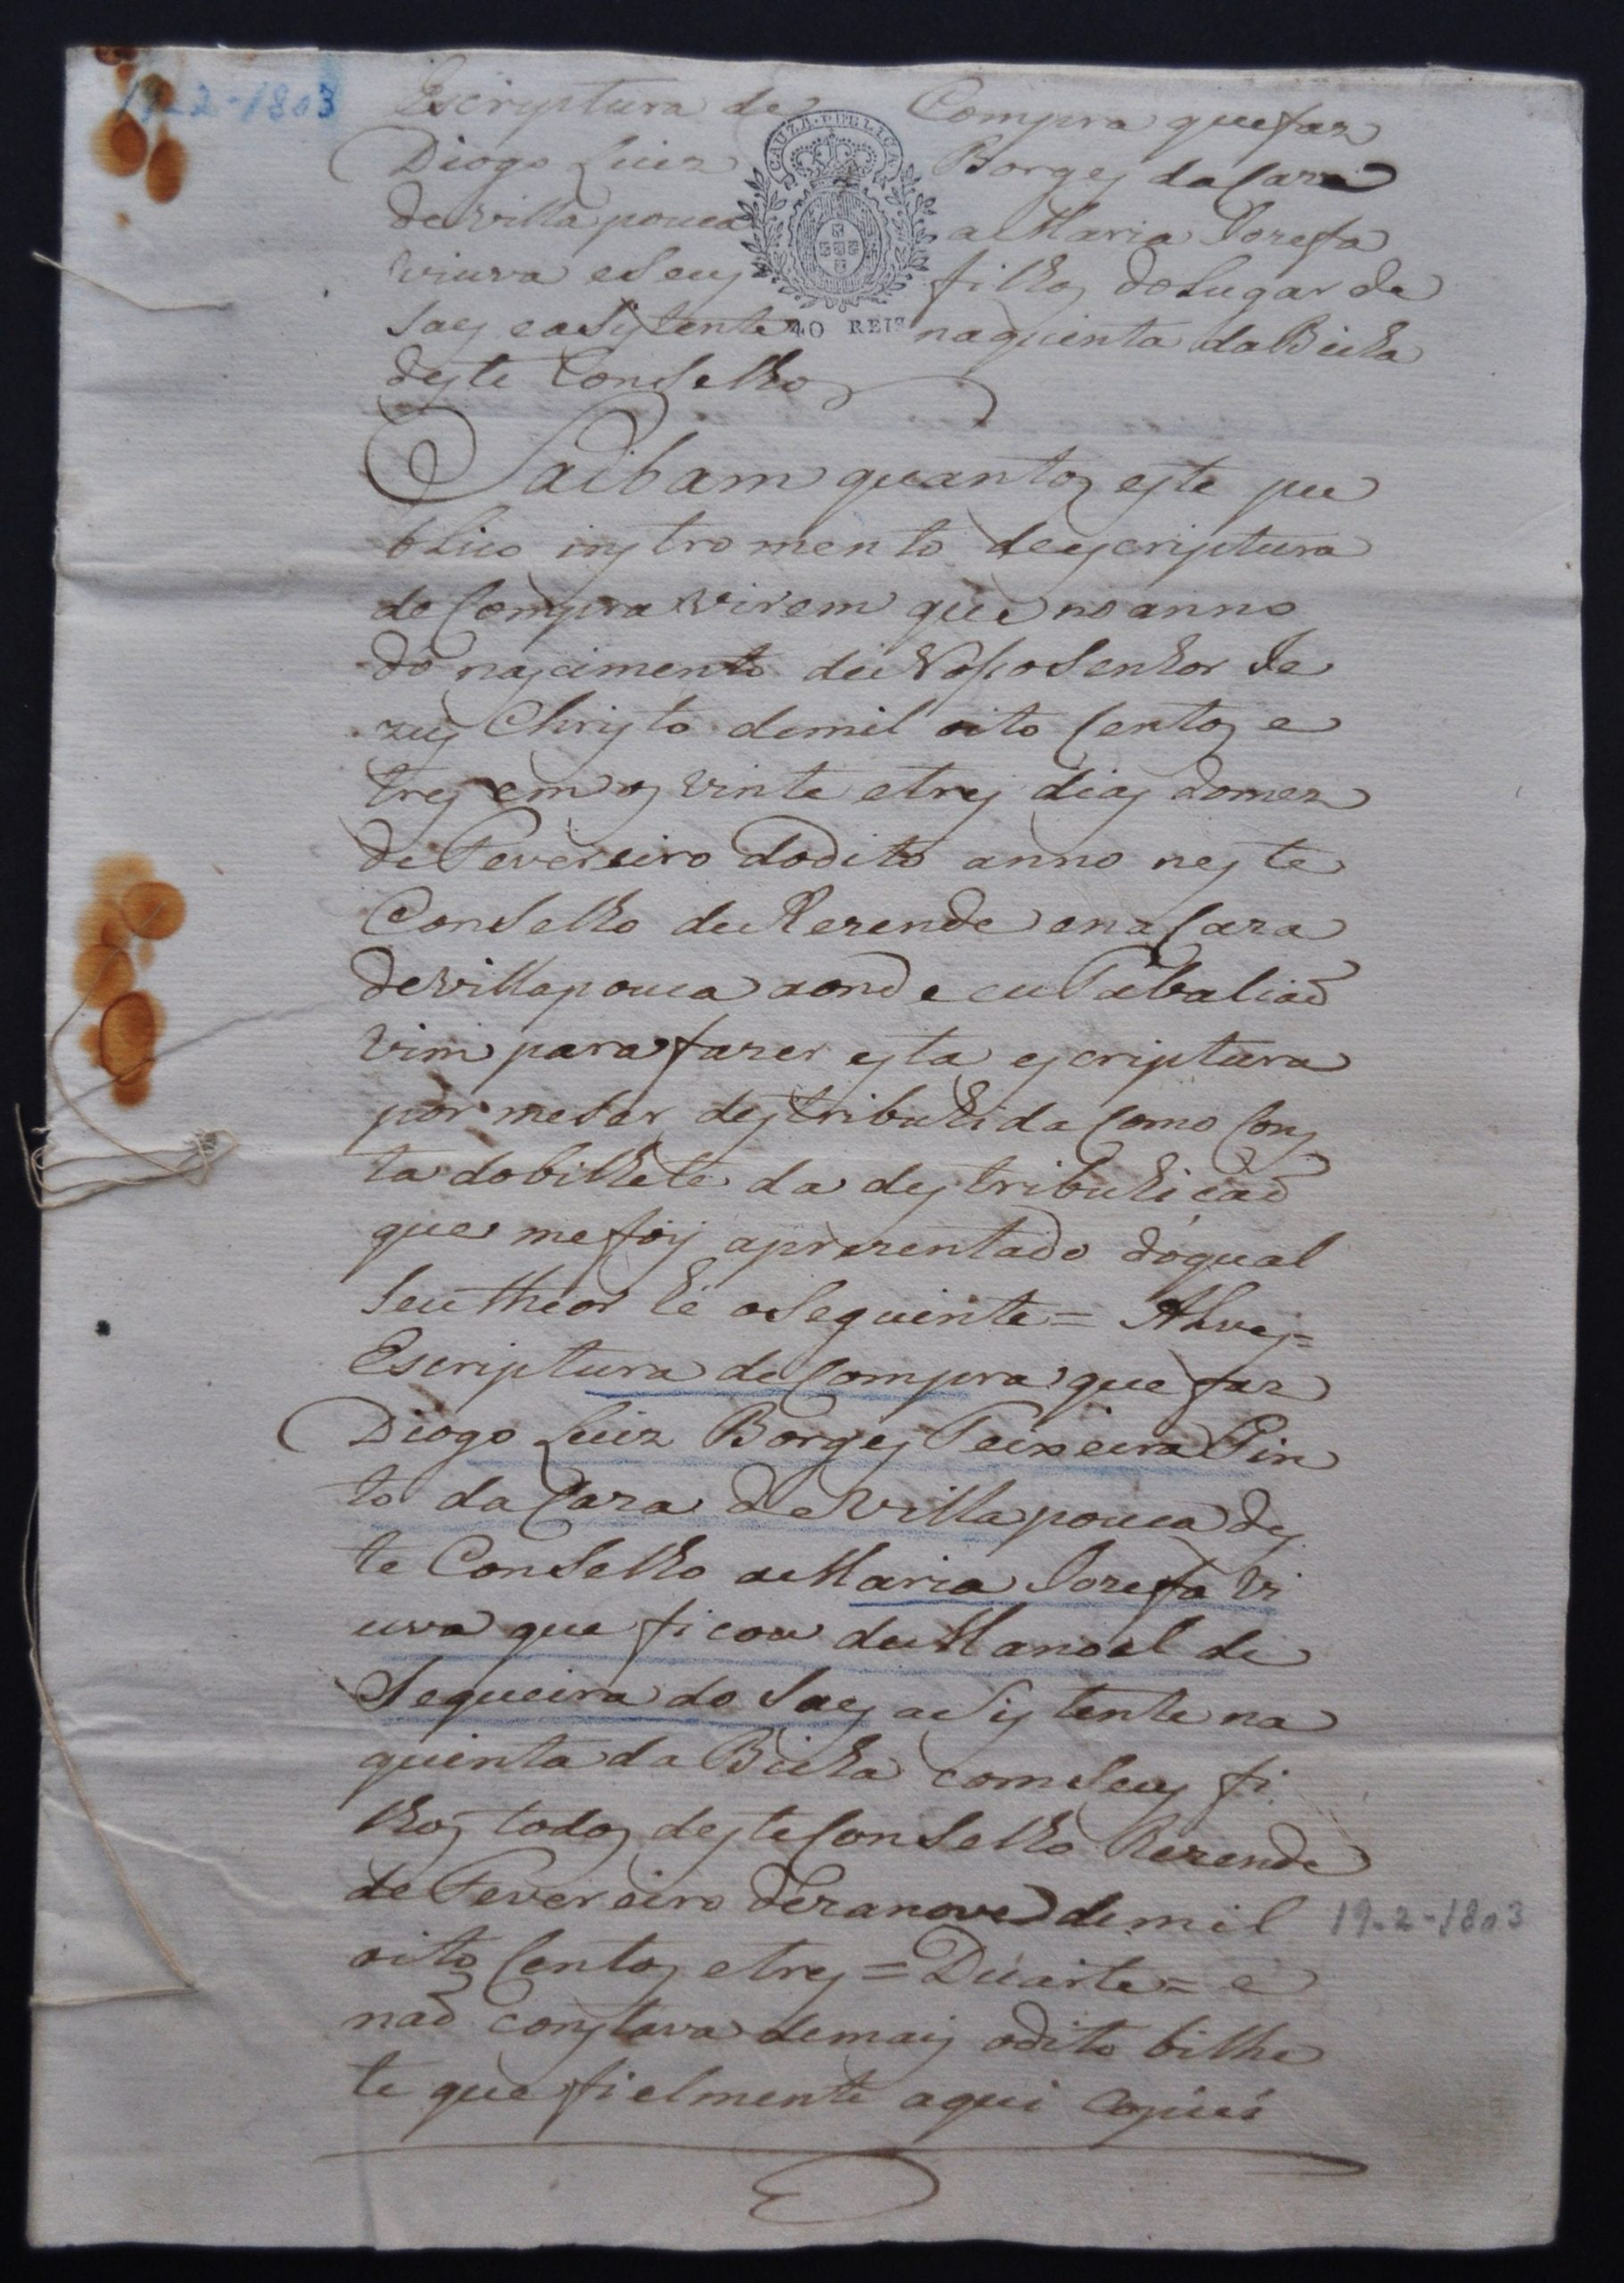 19-2-1803
Escriptura de Compra que faz
Diogo Luiz Borges da Caza
de Villa pouca a Maria Jozefa
viuva e seus filhos do Lugar de
Saes e asistente na quinta da Bicha
deste Conselho
CAUZA PUBLICA
40 REIS
Saibam quantos este pu
blico instromento de escriptura
de Compra virem que no anno
do nascimento de Nosso Senhor Je
zus Christo de mil oito Centos e
tres em os vinte e tres dias do mez
de Fevereiro do dito anno neste
Conselho de Rezende e na Caza
de Villa pouca aonde eu Tabaliaõ
vim para fazer esta escriptura
por me ser destribuhida Como Cons
ta do bilhete da destribuhicaõ
que me foy aprezentado do qual
seu theor hé o Seguinte = Alves =
Escriptura de Compra que faz
Diogo Luiz Borges Teixeira Pin
to da Caza de Villa pouca des
te Conselho a Maria Jozefa Vi
uva que ficou de Manoel de
Sequeira do Saes asistente na
quinta da Bicha com seus fi
lhos todos deste Conselho Rezende
de Fevereiro dezanove de mil
oito Centos e tres = Duarte = e
19-2-1803
naõ constava de mais o dito bilhe
te que fielmente aqui copiei